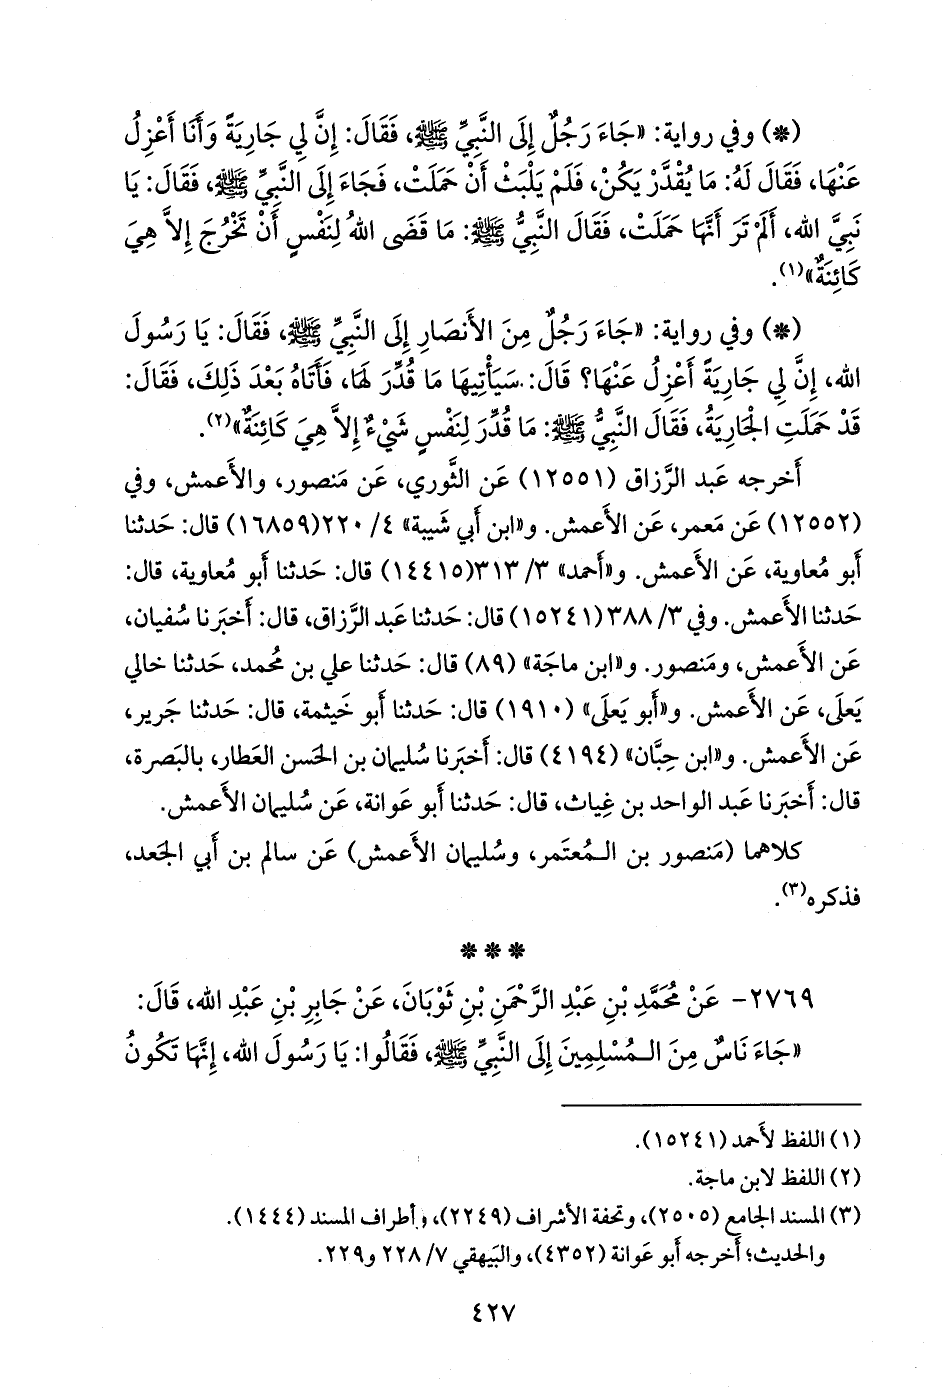 (*) وفي رواية: «جَاءَ رَجُلٌ إِلَى النَّبِيِّ ﷺ، فَقَالَ: إِنَّ لِي جَارِيَةً وَأَنَا أَعْزِلُ
عَنْهَا، فَقَالَ لَهُ: مَا يُقْدَّرْ يَكُنْ، فَلَمْ يَلْبَثْ أَنْ حَمَلَتْ، فَجَاءَ إِلَى النَّبِيِّ ﷺ، فَقَالَ: يَا
نَبِيَّ الله، أَلَمْ تَرَ أَنَّهَا حَمَلَتْ، فَقَالَ النَّبِيُّ ﷺ: مَا قَضَى اللهُ لِنَفْسٍ أَنْ تَخْرُجَ إِلاَّ هِيَ
كَائِنَةٌ»(١).
(*) وفي رواية: «جَاءَ رَجُلٌ مِنَ الأَنصَارِ إِلَى النَّبِيِّ ﷺ، فَقَالَ: يَا رَسُولَ
الله، إِنَّ لِي جَارِيَةً أَعْزِلُ عَنْهَا؟ قَالَ: سَيَأْتِيهَا مَا قُدِّرَ لَهَا، فَأَتَاهُ بَعْدَ ذَلِكَ، فَقَالَ:
قَدْ حَمَلَتِ الْجَارِيَةُ، فَقَالَ النَّبِيُّ ﷺ: مَا قُدِّرَ لِنَفْسٍ شَيْءٌ إِلاَّ هِيَ كَائِنَةٌ»(٢).
أَخرجه عَبد الرَّزاق (١٢٥٥١) عَن الثَّوري، عَن مَنصور، والأَعمش، وفي
(١٢٥٥٢) عَن مَعمر، عَن الأَعمش. و«ابن أَبي شَيبة» ٤/ ٢٢٠(١٦٨٥٩) قال: حَدثنا
أَبو مُعاوية، عَن الأَعمش. و«أَحمد» ٣/ ٣١٣(١٤٤١٥) قال: حَدثنا أَبو مُعاوية، قال:
حَدثنا الأَعمش. وفي ٣/ ٣٨٨(١٥٢٤١) قال: حَدثنا عَبد الرَّزاق، قال: أَخبَرنا سُفيان،
عَن الأَعمش، ومَنصور. و«ابن ماجَة» (٨٩) قال: حَدثنا علي بن مُحمد، حَدثنا خالي
يَعلَى، عَن الأَعمش. و«أَبو يَعلَى» (١٩١٠) قال: حَدثنا أَبو خَيثمة، قال: حَدثنا جَرير،
عَن الأَعمش. و«ابن حِبَّان» (٤١٩٤) قال: أَخبَرنا سُليمان بن الحَسن العَطار، بالبَصرة،
قال: أَخبَرنا عَبد الواحد بن غِياث، قال: حَدثنا أَبو عَوانة، عَن سُليمان الأَعمش.
كلاهما (مَنصور بن الـمُعتَمر، وسُليمان الأَعمش) عَن سالم بن أَبي الجَعد،
فذكره(٣).
***
٢٧٦٩- عَنْ مُحَمَّدِ بْنِ عَبْدِ الرَّحْمَنِ بْنِ ثَوْبَانَ، عَنْ جَابِرِ بْنِ عَبْدِ الله، قَالَ:
«جَاءَ نَاسٌ مِنَ الـمُسْلِمِينَ إِلَى النَّبِيِّ ﷺ، فَقَالُوا: يَا رَسُولَ الله، إِنَّهَا تَكُونُ
(١) اللفظ لأَحمد (١٥٢٤١).
(٢) اللفظ لابن ماجة.
(٣) المسند الجامع (٢٥٠٥)، وتحفة الأشراف (٢٢٤٩)، وأطراف المسند (١٤٤٤).
والحديث؛ أَخرجه أَبو عَوانة (٤٣٥٢)، والبَيهقي ٧/ ٢٢٨ و٢٢٩.
٤٢٧